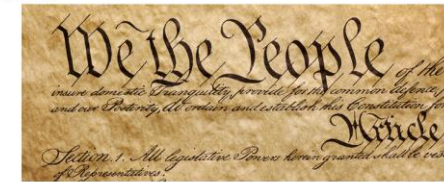 We the People of the
insure domestic Tranquility, provide for the common defence,
and our Posterity, do ordain and establish this Constitution for
Article
Section. 1. All legislative Powers herein granted shall be ves
of Representatives.